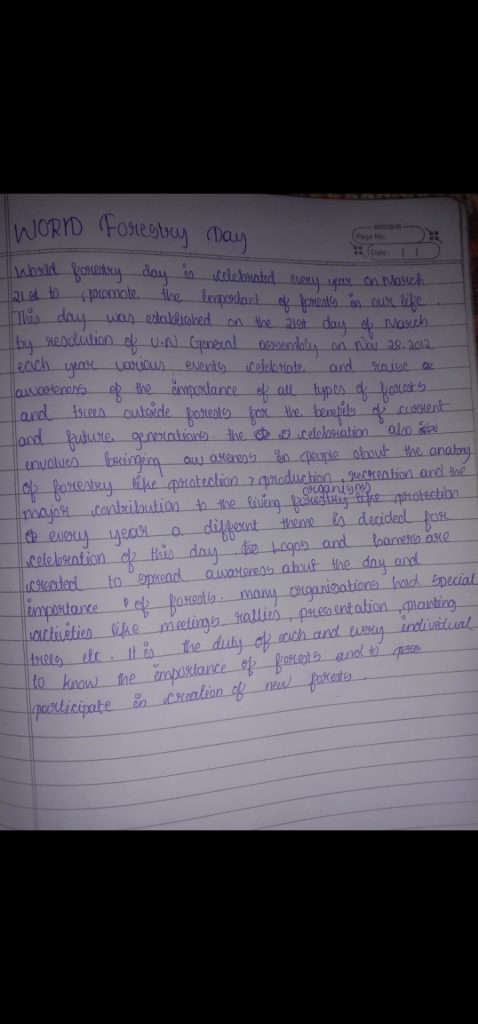 WORlD Forestry Day
BOSS
Page No.
Date: | |
World forestry day is celebrated every year on March
21st to promote the important of forests in our life.
This day was established on the 21st day of March
by resolution of U.N General assembly on Nov 28.2012
each year various events celebrate and raise
awareness of the importance of all types of forests
and trees outside forests for the benefits of current
and future generations. the celebration also
envolves bringing awareness in people about the
of forestry like protection, production, recreation and the
organisms
major contribution to the living forestry like protection
every year a differnt theme is decided for
celebration of this day. Logos and banners are
created to spread awareness about the day and
importance of forests. many organisations hold special
activities like meetings, rallies, presentation, planting
trees etc. It is the duty of each and every individual
to know the importance of forests and to
participate in creation of new forests.